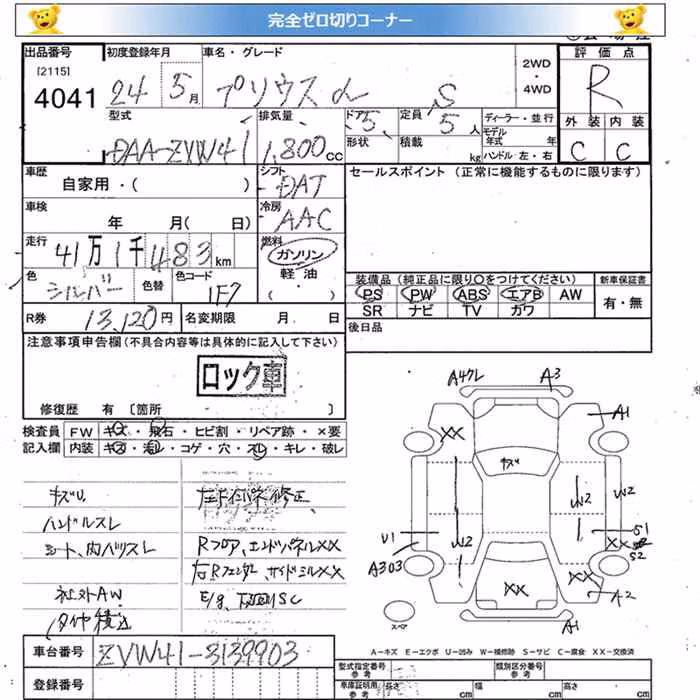 完全ゼロ切りコーナー
出品番号 初度登録年月 車名・グレード 評価点
[2115]
4041 24 5月 プリウスα S 2WD・4WD R
型式 排気量 ドア 定員 ディーラー・並行 外装 内装
DAA-ZVW41 1,800cc 5 5人 モデル年式 年 C C
形状 積載 kg ハンドル 左・右
車歴 シフト セールスポイント(正常に機能するものに限ります)
自家用・( ) DAT
車検 冷房
年 月( 日) AAC
走行 燃料
41万1千483km ガソリン
軽油
( )
色 色替 色コード 装備品(純正品に限り○をつけてください) 新車保証書
シルバー 1F7 PS PW ABS エアB AW 有・無
SR ナビ TV カワ
R券 13,120円 名変期限 月 日 後日品
注意事項申告欄(不具合内容等は具体的に記入して下さい)
ロック車
修復歴 有 〔箇所 〕
検査員 FW キズ・飛石・ヒビ割・リペア跡・×要
記入欄 内装 キズ・汚レ・コゲ・穴・スレ・キレ・破レ
キズU
ハンドルスレ
シート、内ハリスレ
社外AW
タイヤ積込
Rフロア、エンドパネルXX
右Rフェンダー、サイドシルXX
A3
A1
XX
キズ
W2
W2
W2
U1
A303
S1
XX
S2
XX
XX
A2
A1
スペア
A-キズ E-エクボ U-凹み W-補修跡 S-サビ C-腐食 XX-交換済
車台番号 ZVW41-3139903
登録番号
型式指定番号 類別区分番号
車庫証明用参考 長さ cm 幅 cm 高さ cm